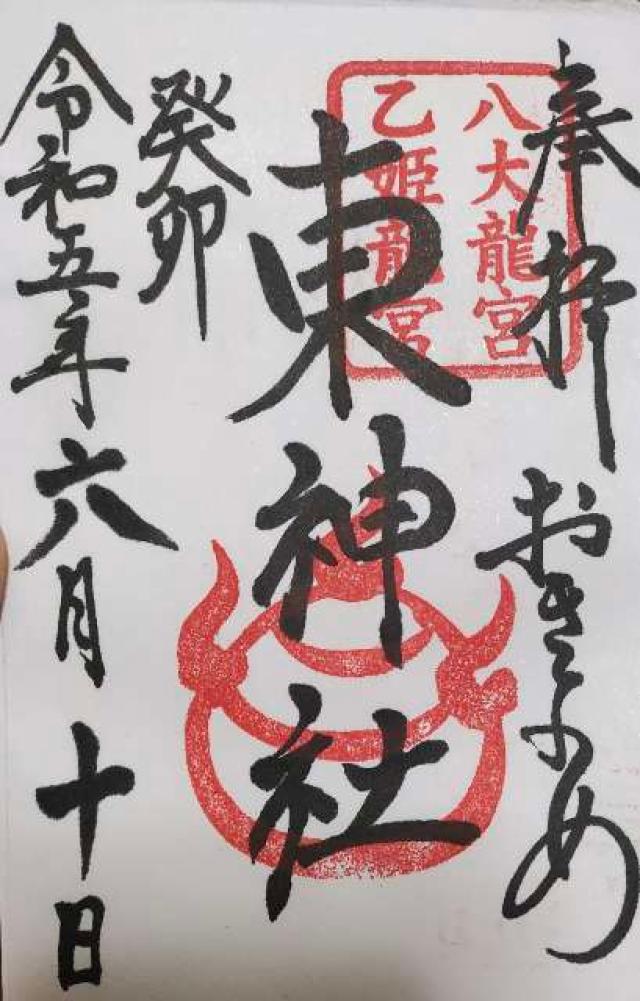 奉拝
八大龍宮
乙姫龍宮
東神社
癸卯
令和五年六月十日